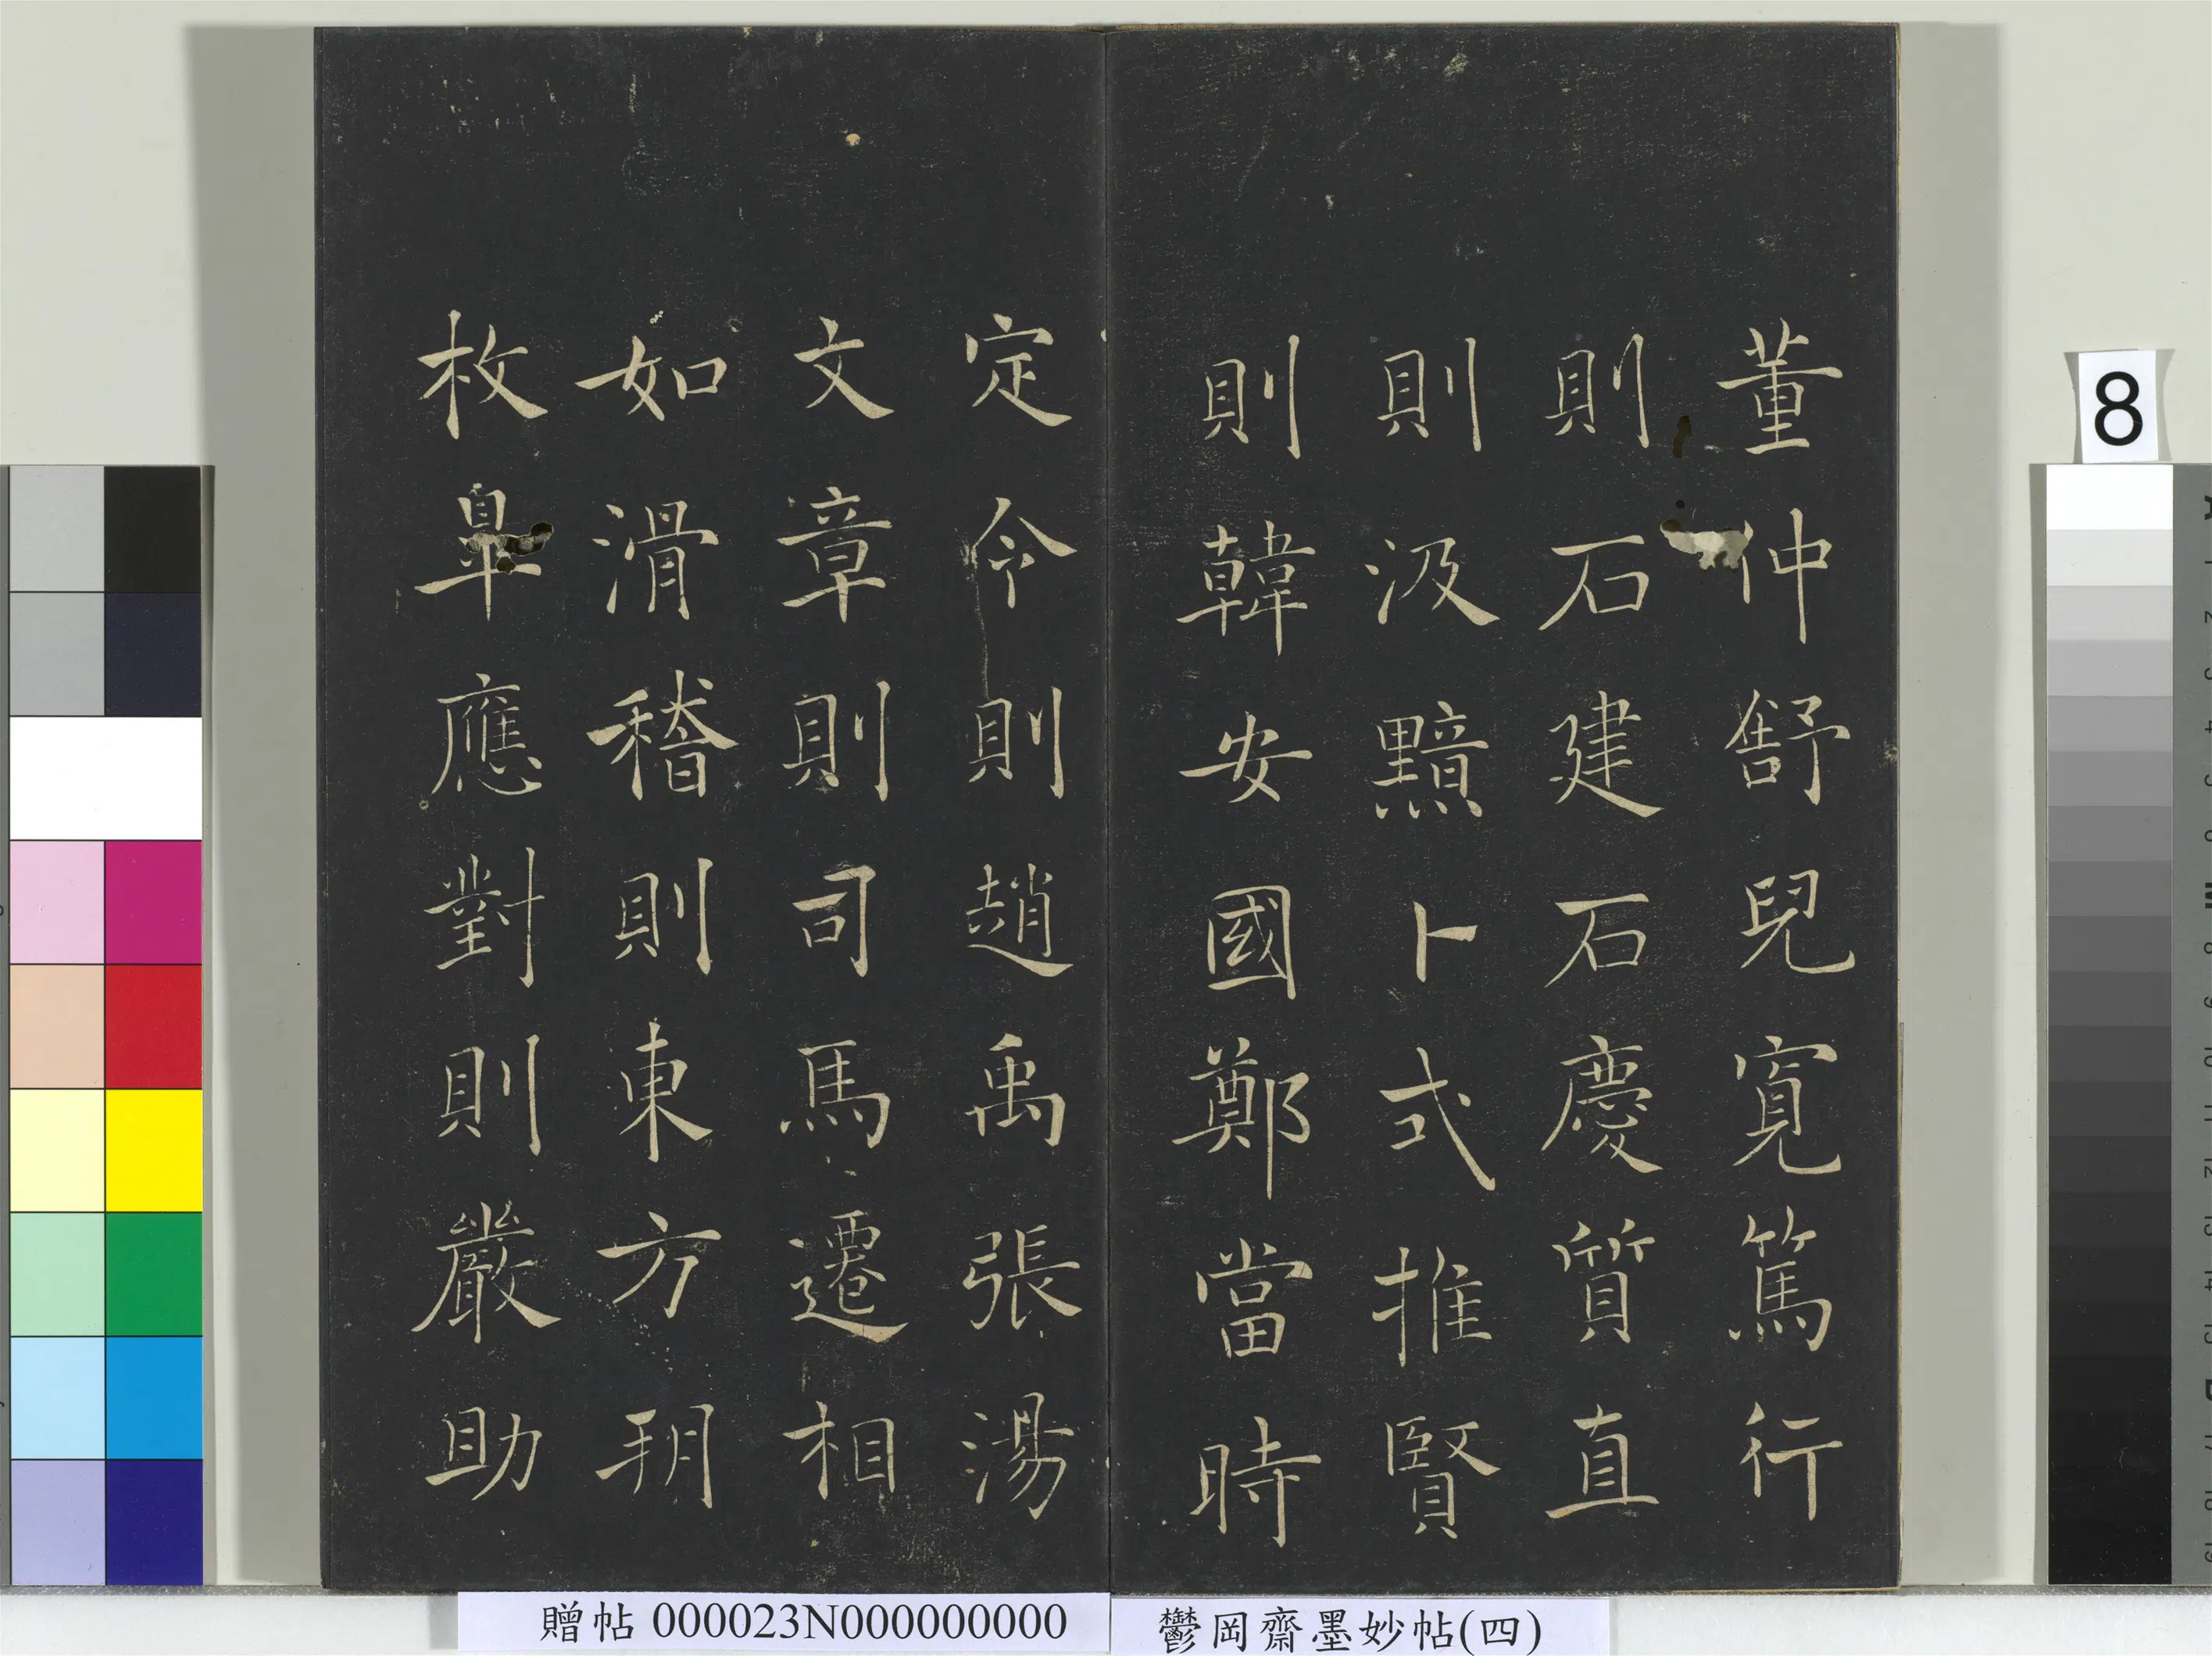 董仲舒兒寬篤行
則石建石慶質直
則汲黯卜式推賢
則韓安國鄭當時
定令則趙禹張湯
文章則司馬遷相
如滑稽則東方朔
枚皐應對則嚴助
贈帖 000023N000000000
鬱岡齋墨妙帖(四)
8